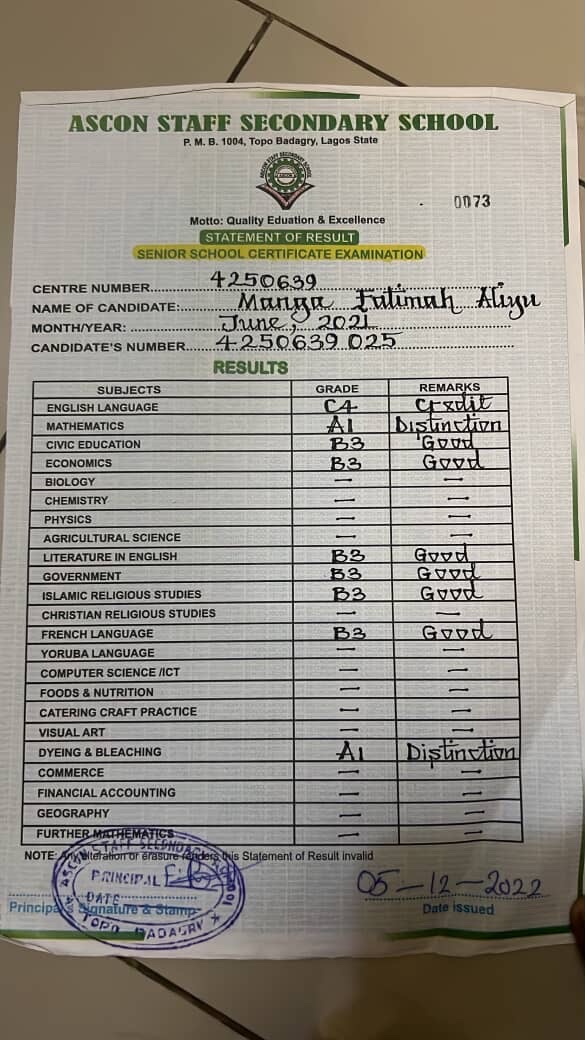 ASCON STAFF SECONDARY SCHOOL
P. M. B. 1004, Topo Badagry, Lagos State
ASCON STAFF SECONDARY SCHOOL
ASCON
0073
Motto: Quality Eduation & Excellence
STATEMENT OF RESULT
SENIOR SCHOOL CERTIFICATE EXAMINATION
CENTRE NUMBER 4250639
NAME OF CANDIDATE: Manga Fatimah Aliyu
MONTH/YEAR: June, 2021
CANDIDATE'S NUMBER 4250639 025
RESULTS
SUBJECTS GRADE REMARKS
ENGLISH LANGUAGE C4 Credit
MATHEMATICS A1 Distinction
CIVIC EDUCATION B3 Good
ECONOMICS B3 Good
BIOLOGY — —
CHEMISTRY — —
PHYSICS — —
AGRICULTURAL SCIENCE — —
LITERATURE IN ENGLISH B3 Good
GOVERNMENT B3 Good
ISLAMIC RELIGIOUS STUDIES B3 Good
CHRISTIAN RELIGIOUS STUDIES — —
FRENCH LANGUAGE B3 Good
YORUBA LANGUAGE — —
COMPUTER SCIENCE /ICT — —
FOODS & NUTRITION — —
CATERING CRAFT PRACTICE — —
VISUAL ART — —
DYEING & BLEACHING A1 Distinction
COMMERCE — —
FINANCIAL ACCOUNTING — —
GEOGRAPHY — —
FURTHER MATHEMATICS — —
NOTE: Any alteration or erasure renders this Statement of Result invalid
ASCON STAFF SECONDARY SCHOOL
PRINCIPAL
DATE
TOPO BADAGRY
05-12-2022
Principal's Signature & Stamp Date issued